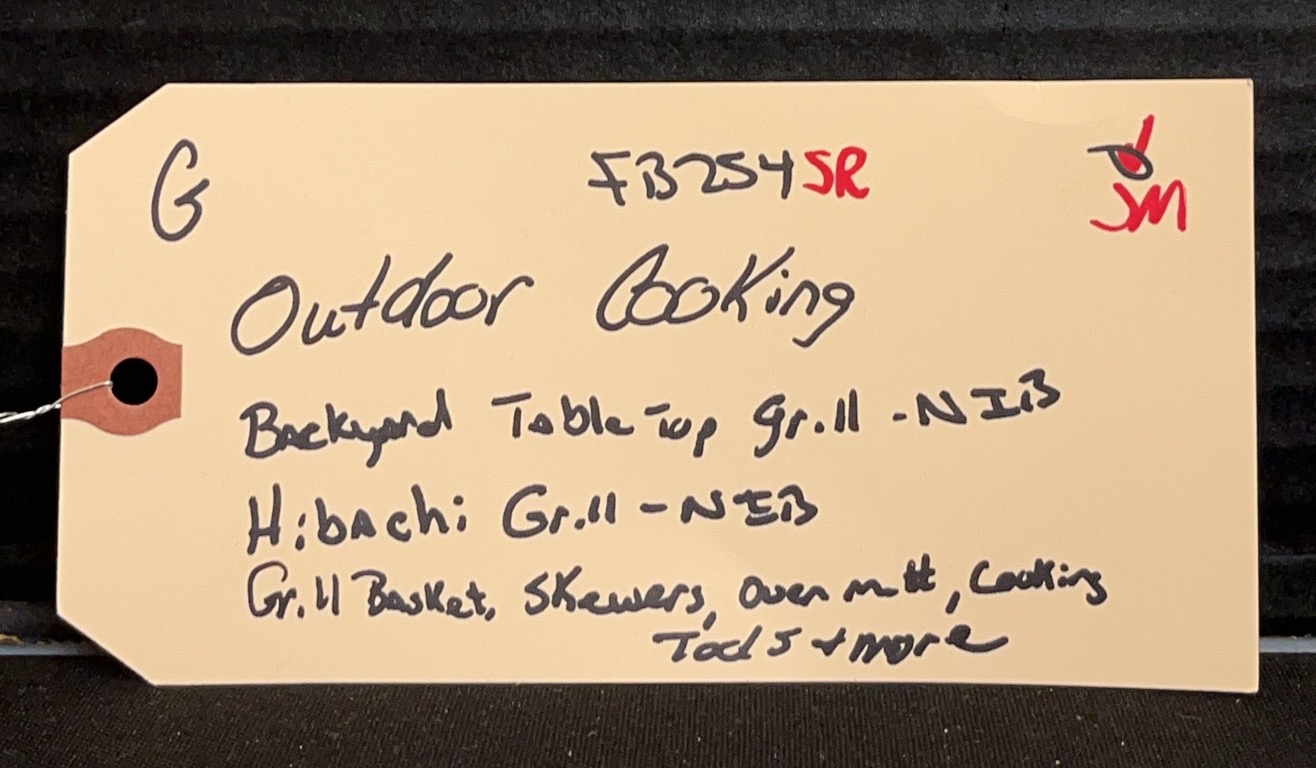 G FB254SR
JM
Outdoor Cooking
Backyard Table Top Grill - NIB
Hibachi Grill - NIB
Grill Basket, Skewers, Oven mitt, Cooking
Tools + more